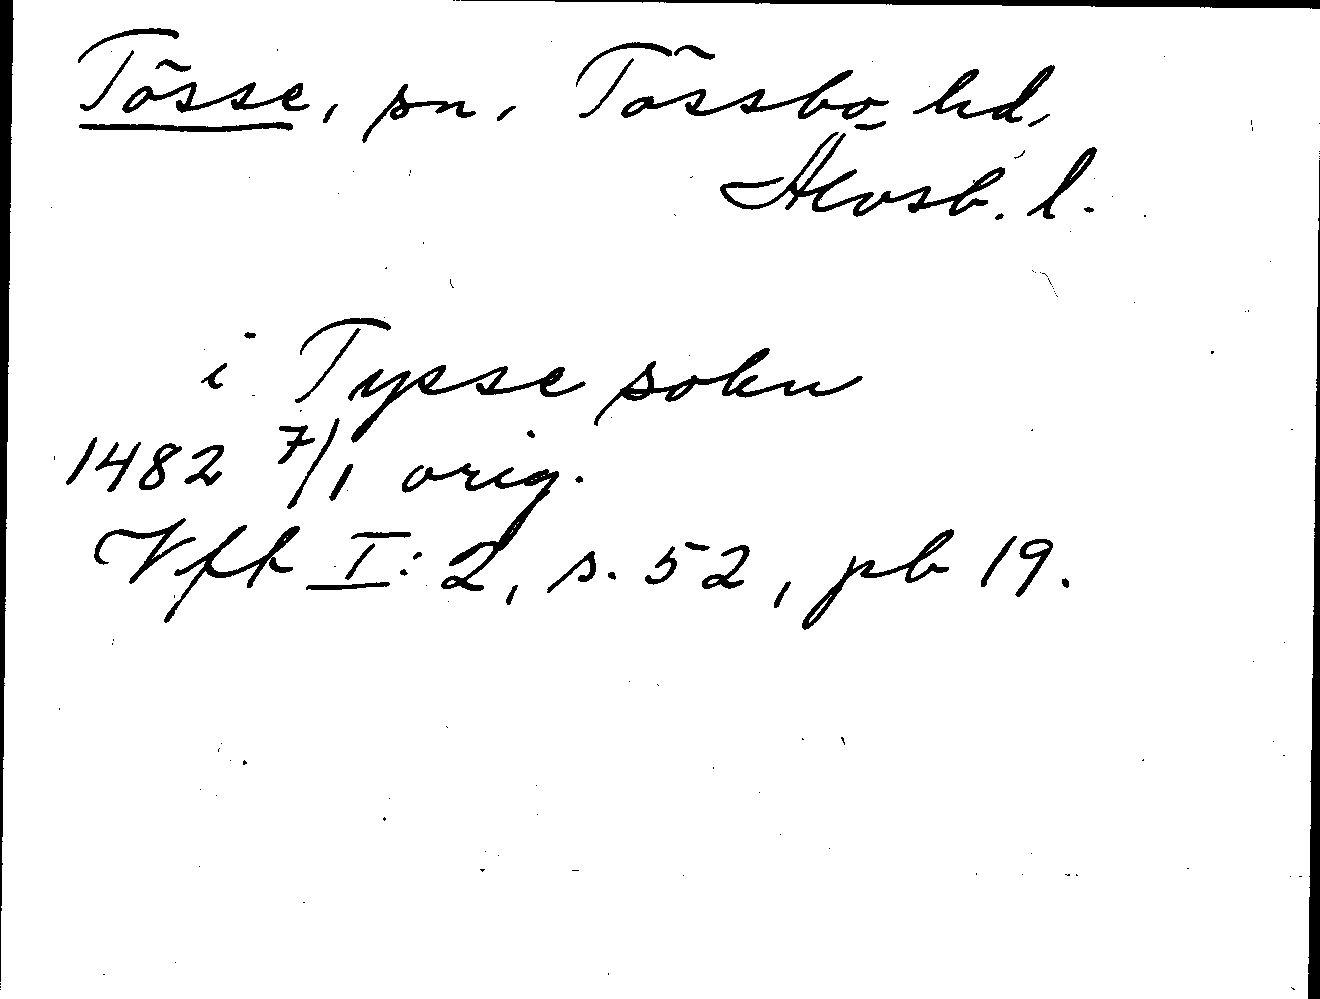 Tösse, sn, Tössbo hd,
Älvsb. l.
i Tysse sokn
1482 7/1 orig.
Vff I:2, s. 52, pb 19.